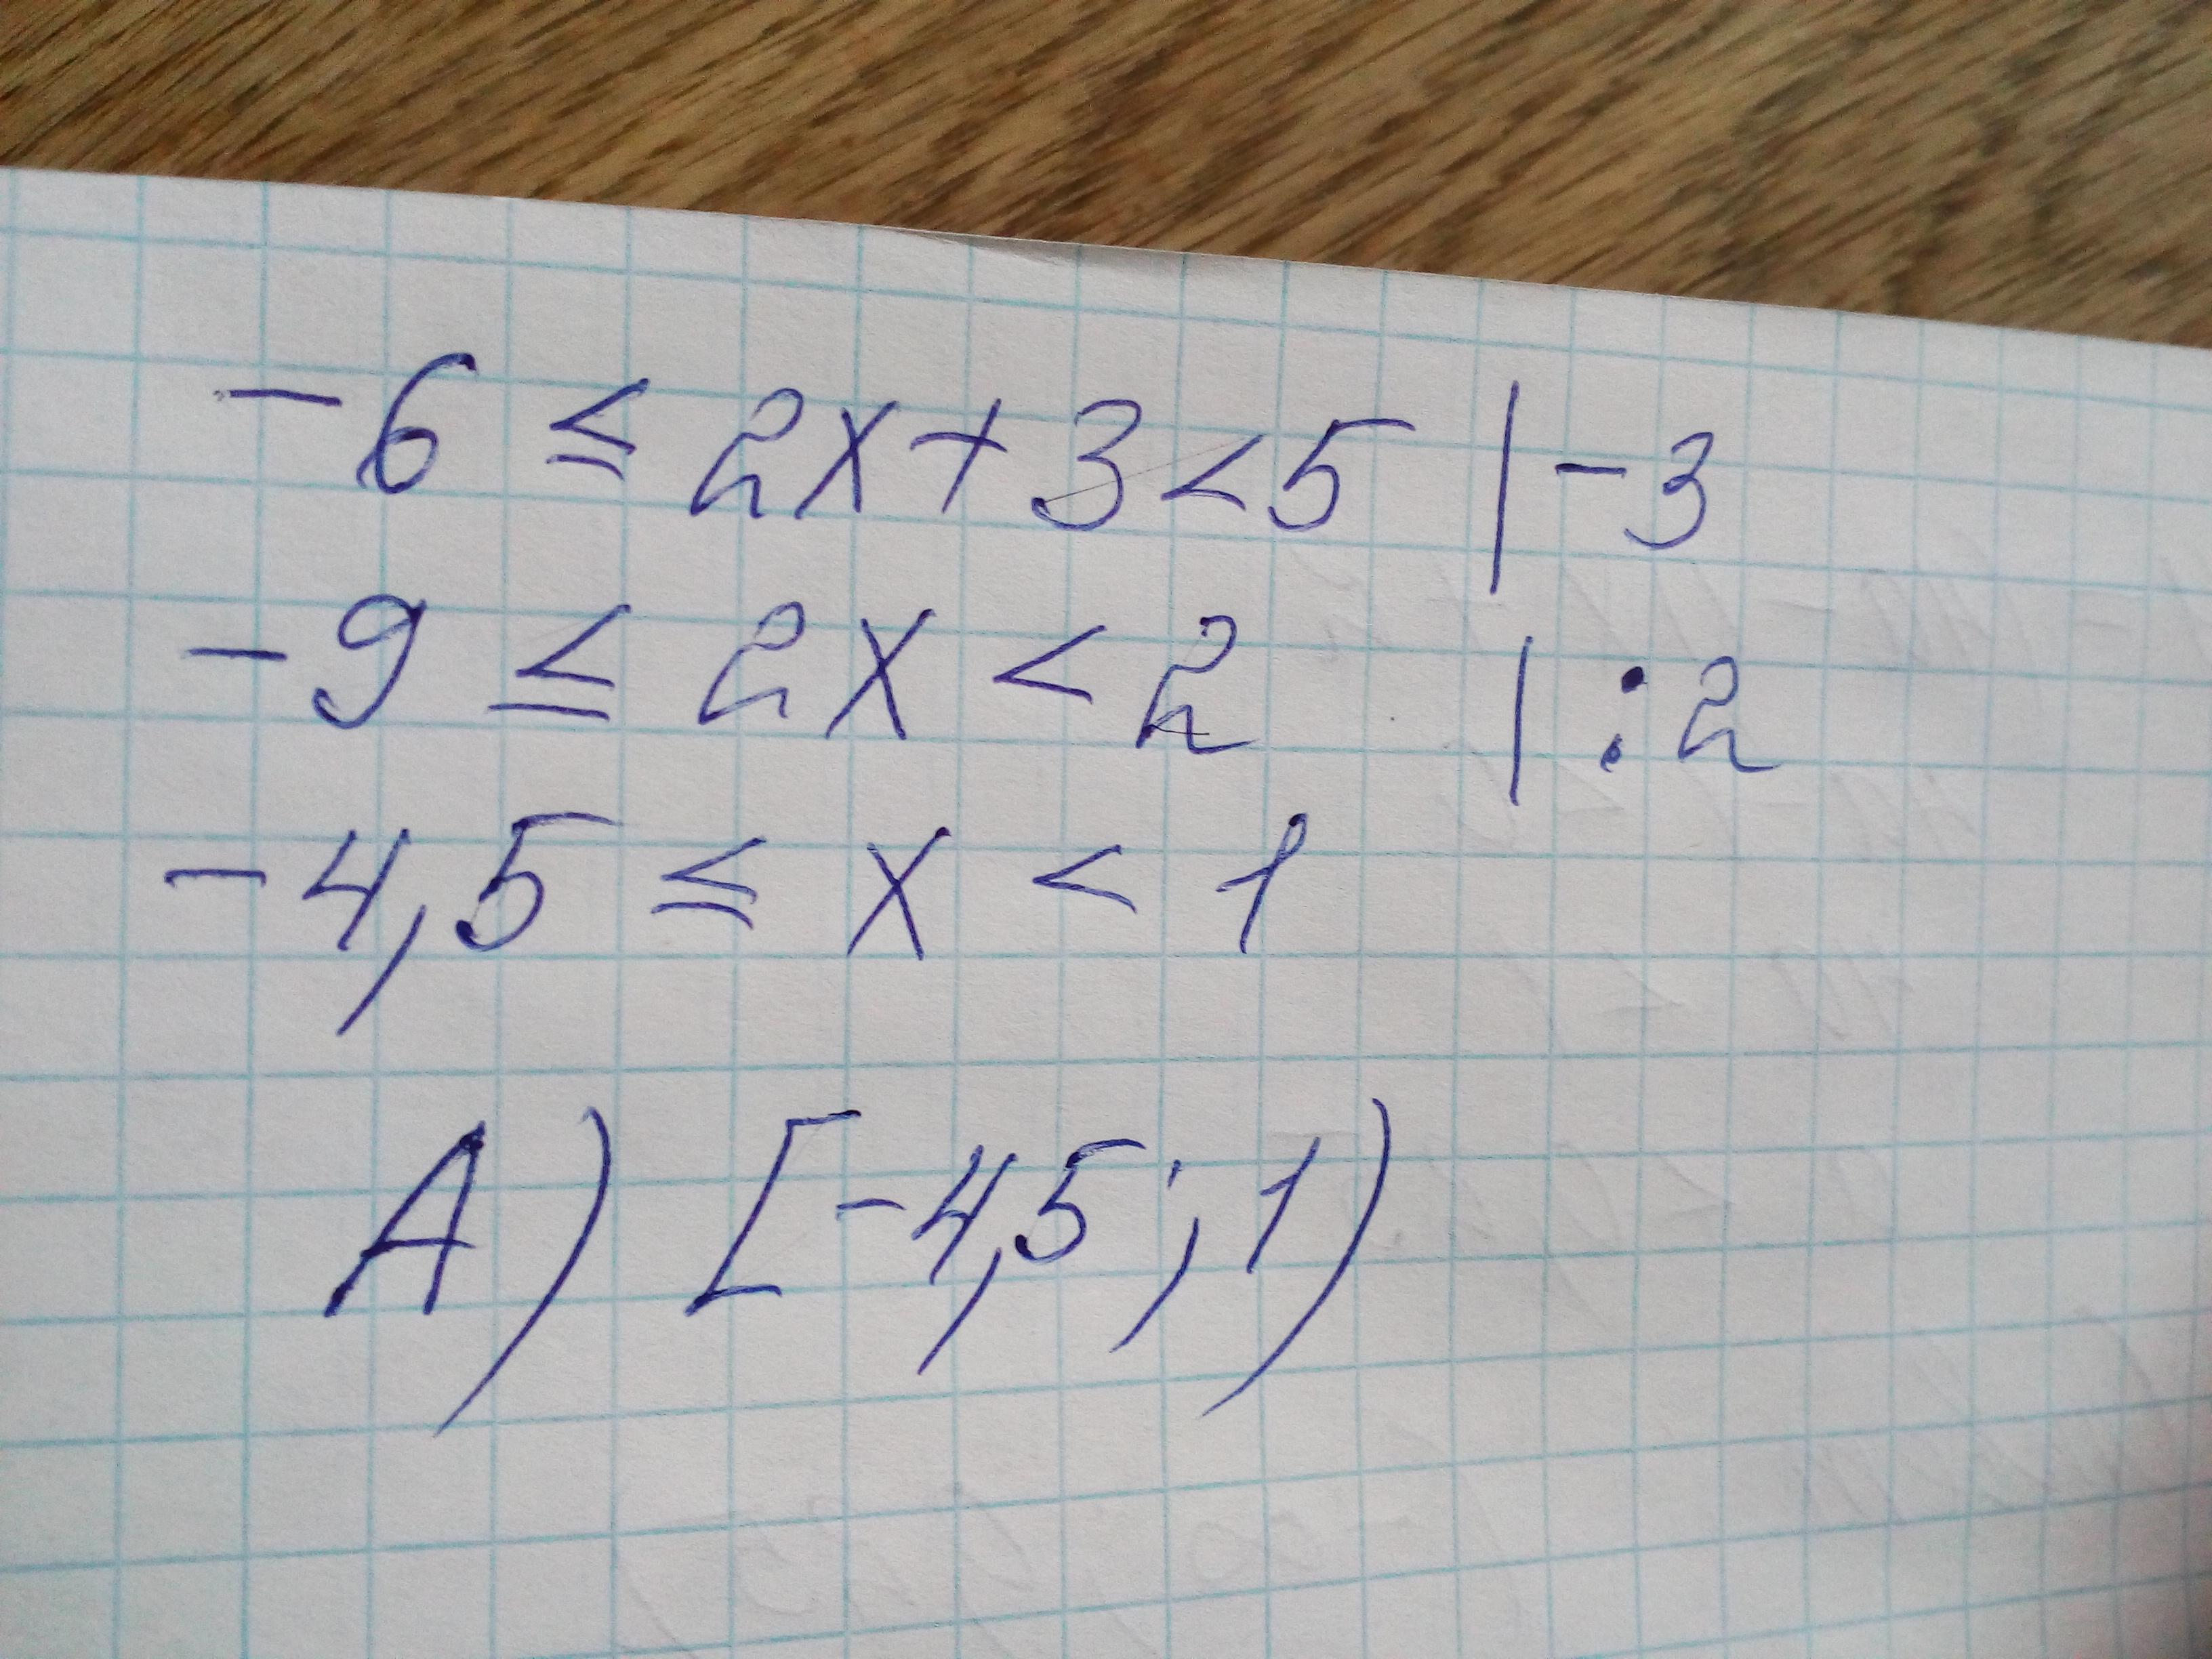 -6 ≤ 2x+3<5 |-3
-9 ≤ 2x < 2 | :2
-4,5 ≤ x < 1
A) [-4,5; 1)